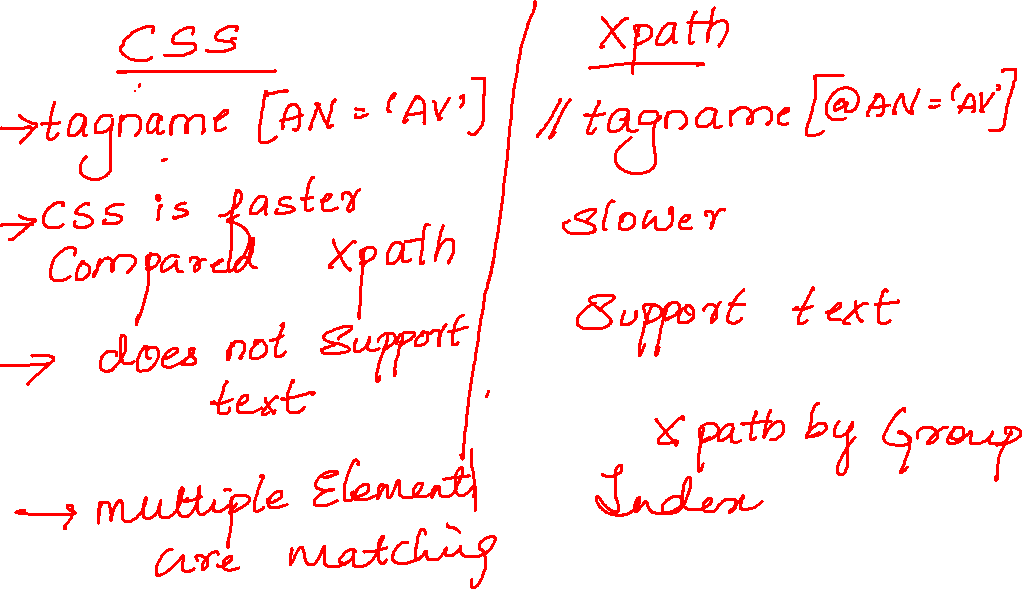 CSS
→tagname [AN = 'AV']
→CSS is faster
Compared Xpath
→ does not support
text
→ multiple Elements
are matching
Xpath
// tagname [@AN = 'AV']
Slower
Support text
Xpath by Group
Index